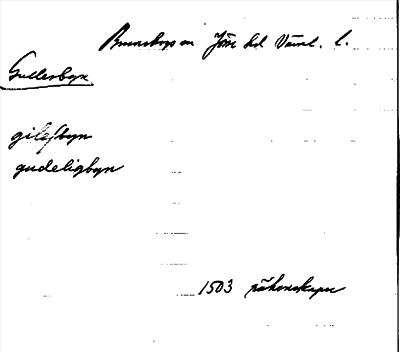 Brunskogs sn Jösse hd Värml. l.
Gullersbyn
gilesbyn
gudeligbyn
1503 räkenskaper